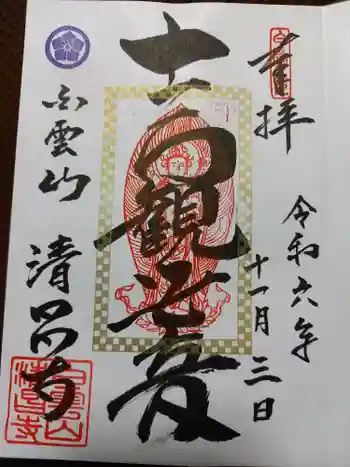 奉拝
令和六年
十一月三日
十一面観世音
白雲山
清昌寺
白雲山
清昌寺